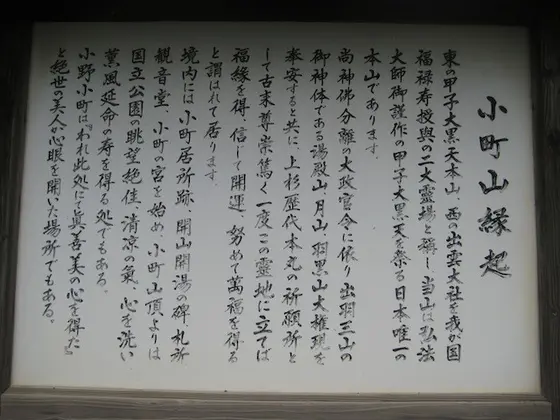 小町山縁起
東の甲子大黒天本山、西の出雲大社を我が国
福禄寿授与の二大霊場と稱し、当山は弘法
大師御謹作の甲子大黒天を祭る日本唯一の
本山であります。
尚神佛分離の大政官令に依り出羽三山の
御神体である湯殿山、月山、羽黒山大権現を
奉安すると共に、上杉歴代本丸の祈願所と
して古来尊崇篤く一度この靈地に立てば
福緣を得、信して開運、努めて萬福を得る
と謂はれて居ります。
境内には、小町居所跡、開山開湯の碑、札所
観音堂、小町の宮を始め、小町山頂よりは
国立公園の眺望絶佳、清凉の氣、心を洗い
薫風延命の寿を得る処でもある。
小野小町は『われ此処にて眞善美の心を得た』
と絶世の美人が心眼を開いた場所でもある。